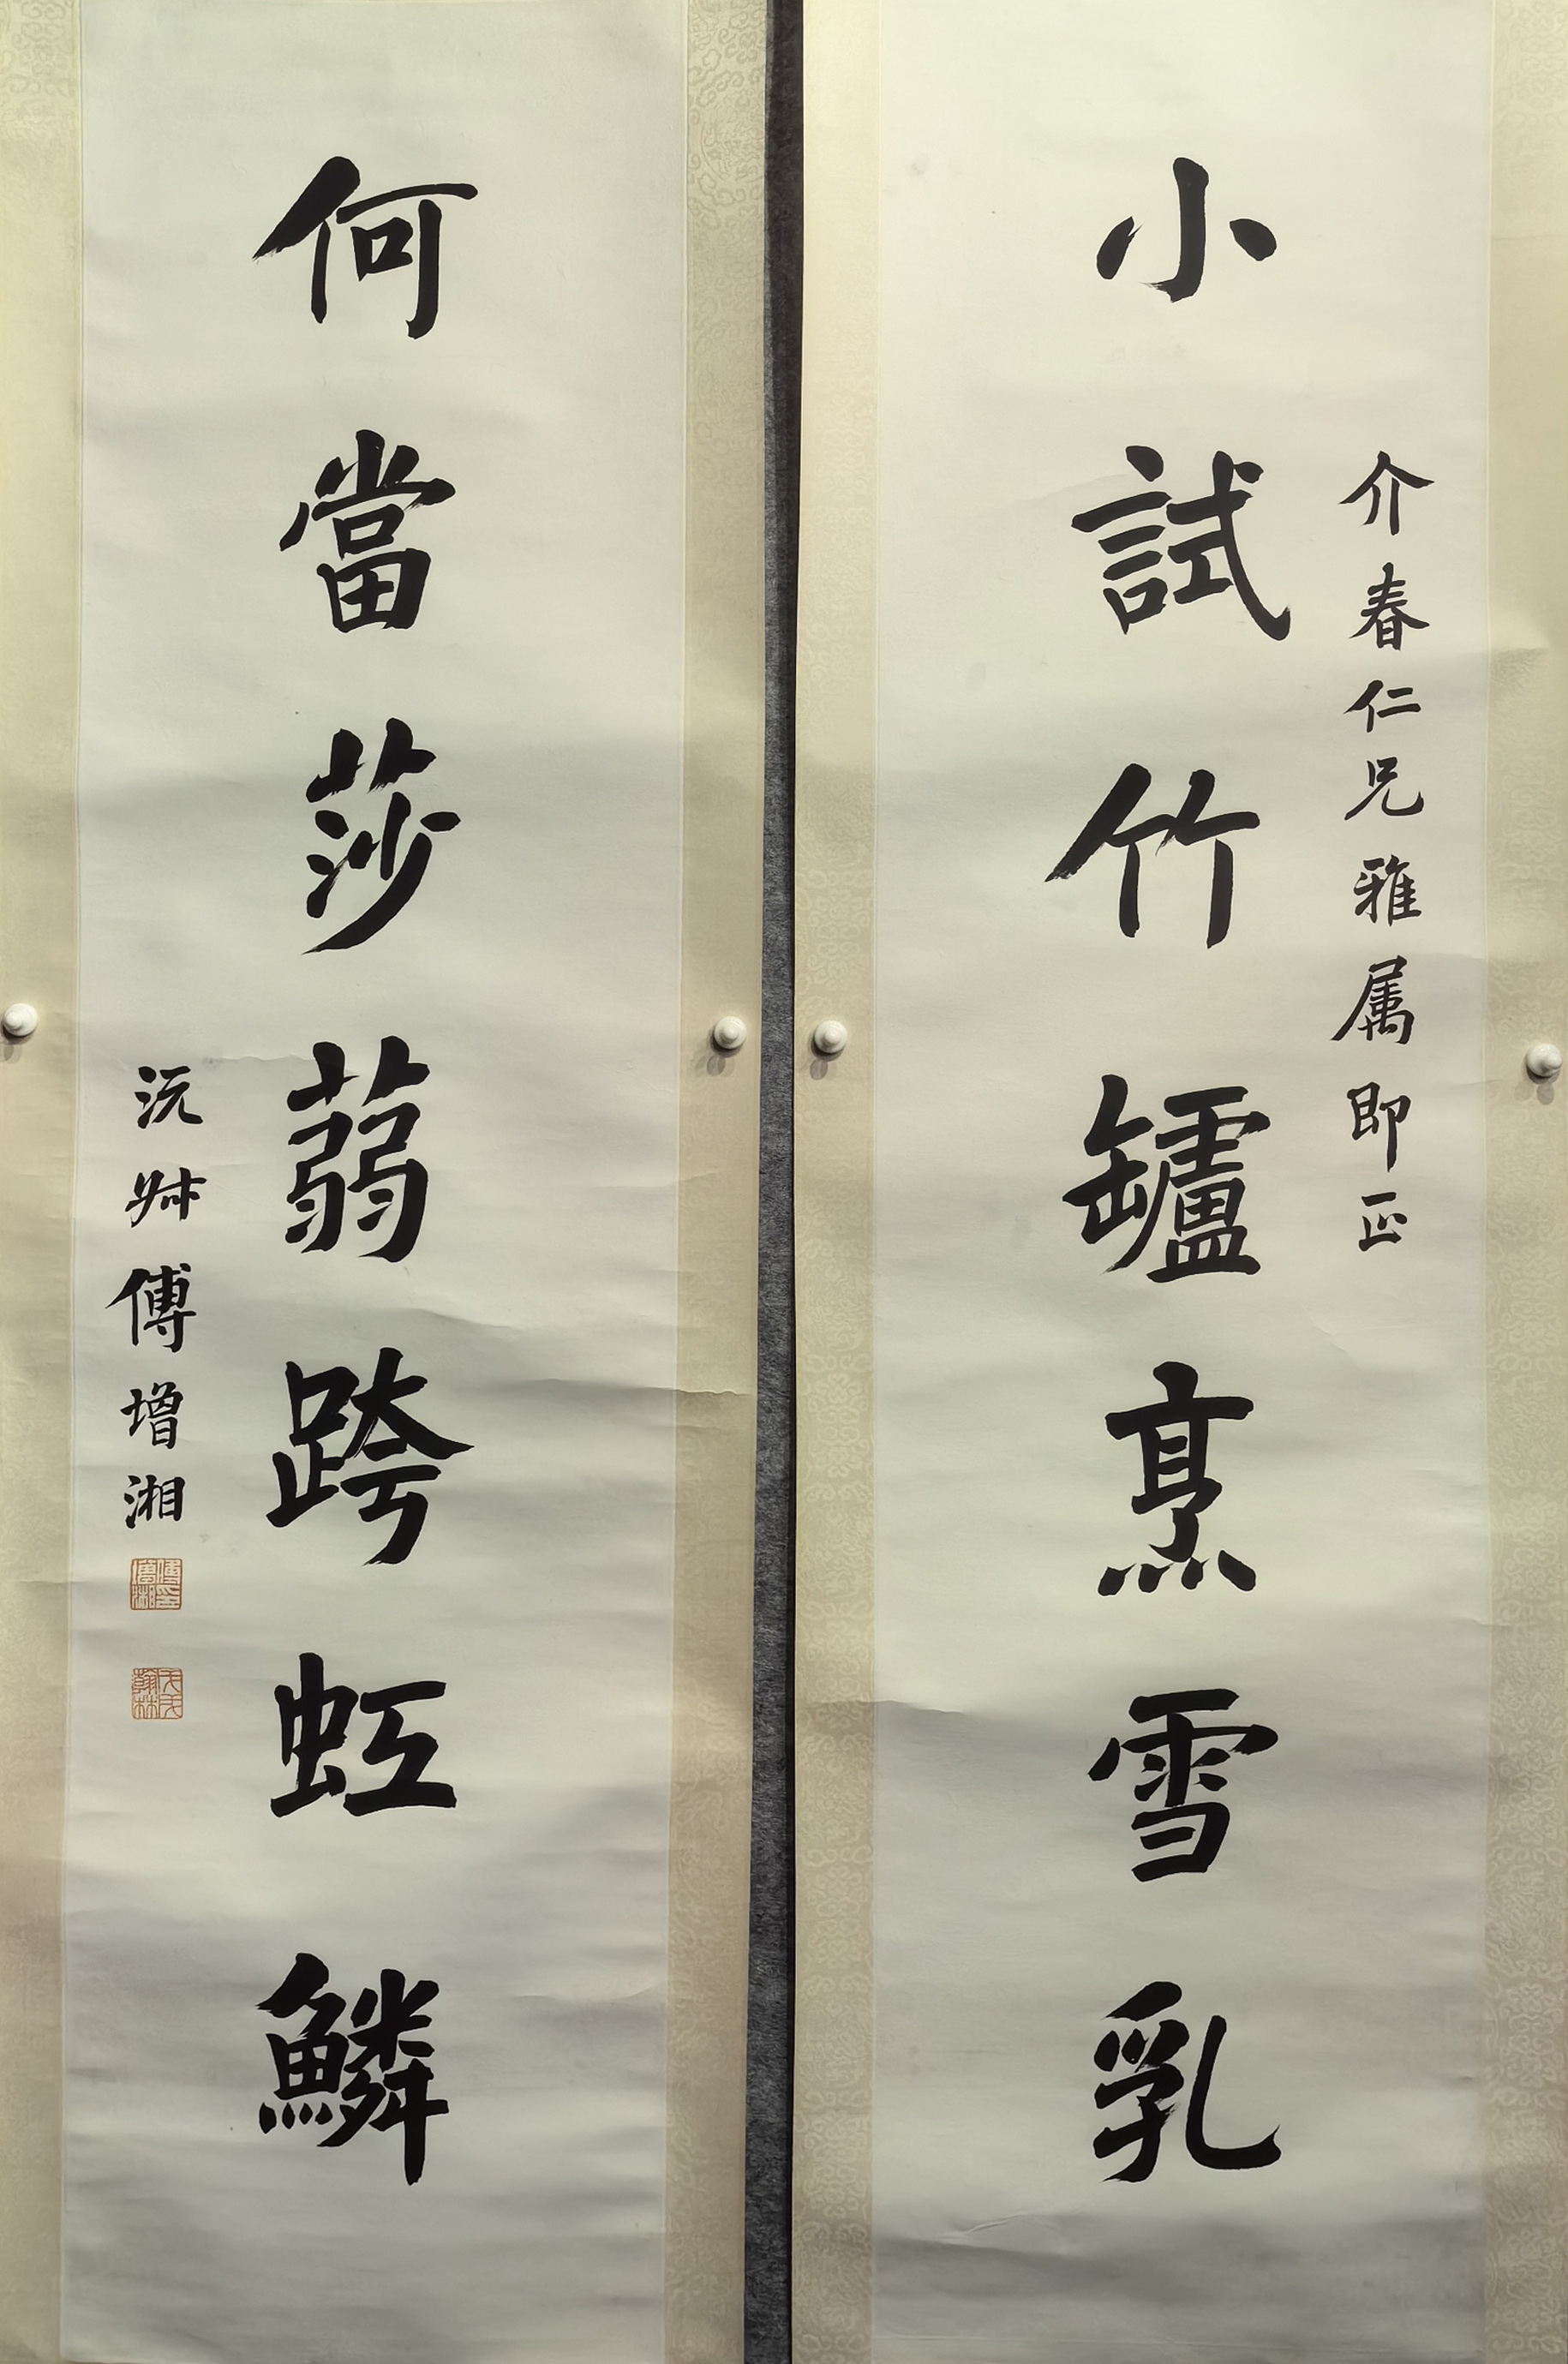 介春仁兄雅属即正
小試竹罏烹雪乳
何當莎蒻跨虹鱗
沅叔傅增湘
傅印增湘
戊戌翰林